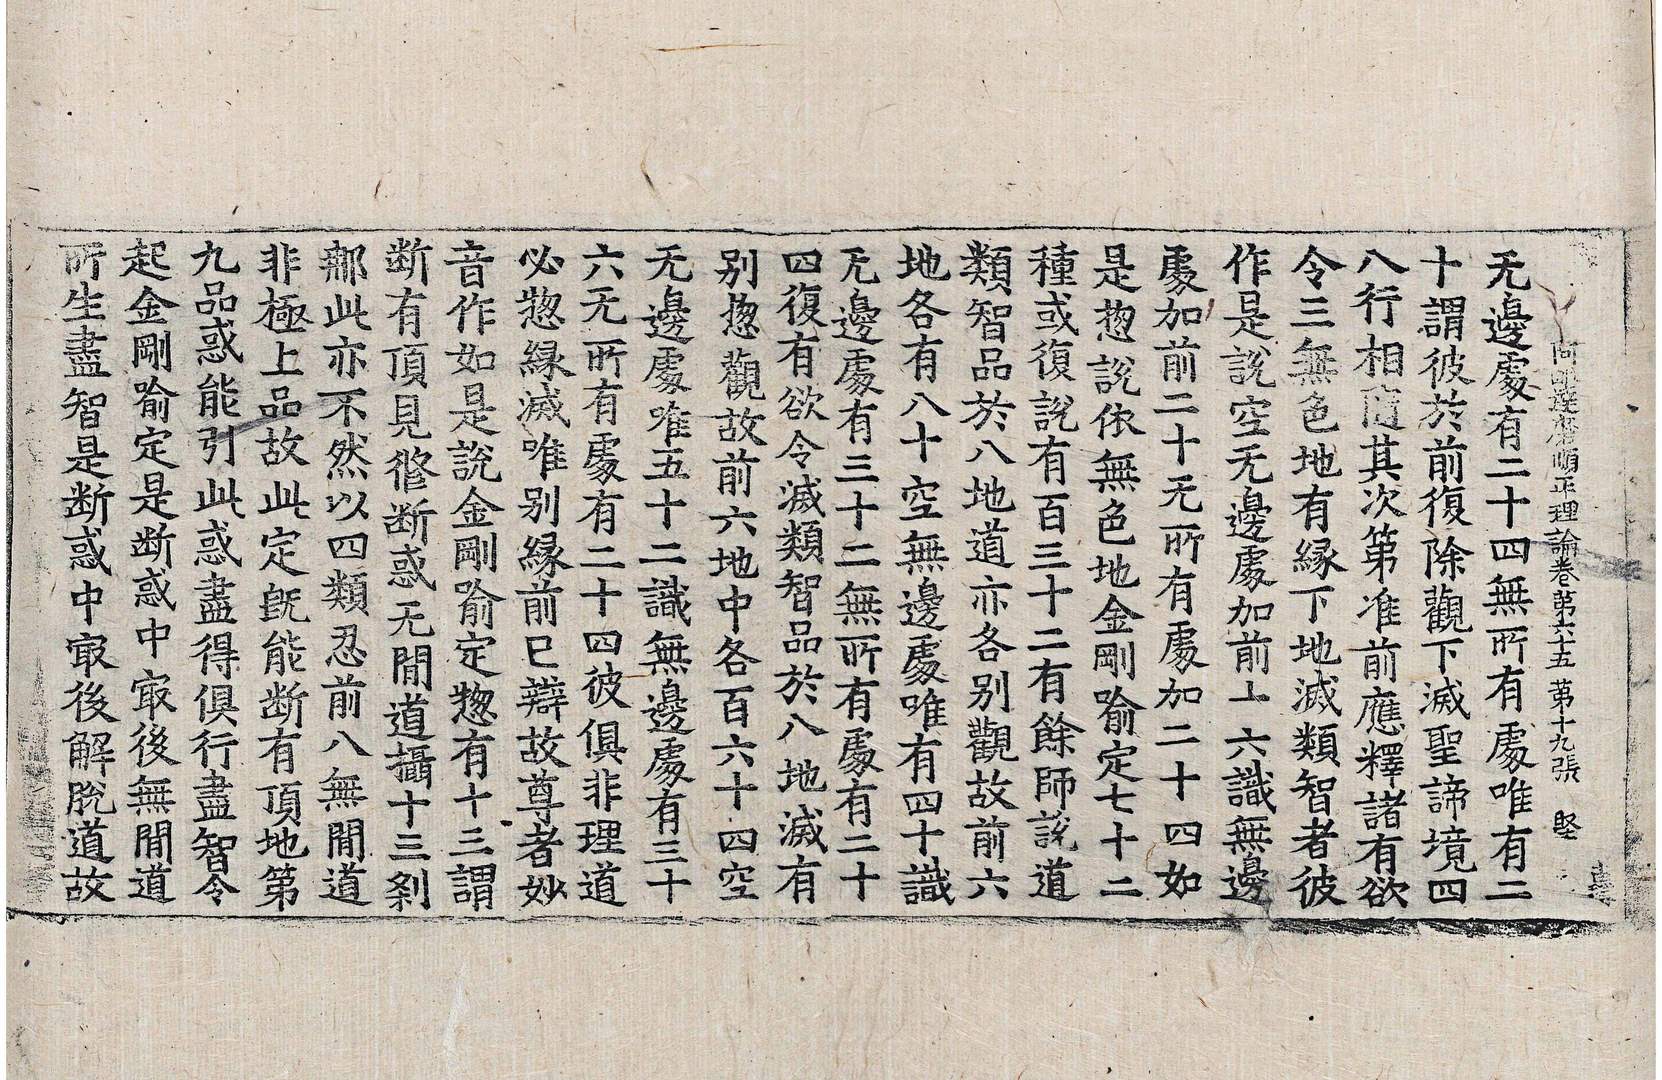 阿毗達磨順正理論卷第六十五 第十九張 堅
无邊處有二十四無所有處唯有二
十謂彼於前復除觀下滅聖諦境四
八行相隨其次第准前應釋諸有欲
令三無色地有縁下地滅類智者彼
作是說空无邊處加前上六識無邊
處加前二十无所有處加二十四如
是惣說依無色地金剛喻定七十二
種或復說有百三十二有餘師說道
類智品於八地道亦各別觀故前六
地各有八十空無邊處唯有四十識
无邊處有三十二無所有處有二十
四復有欲令滅類智品於八地滅有
別惣觀故前六地中各百六十四空
无邊處唯五十二識無邊處有三十
六无所有處有二十四彼俱非理道
必惣縁滅唯別縁前已辯故尊者妙
音作如是說金剛喻定惣有十三謂
断有頂見修断惑无間道攝十三剎
那此亦不然以四類忍前八無間道
非極上品故此定旣能断有頂地第
九品惑能引此惑盡得俱行盡智令
起金剛喻定是断惑中㝡後無間道
所生盡智是断惑中㝡後解脫道故